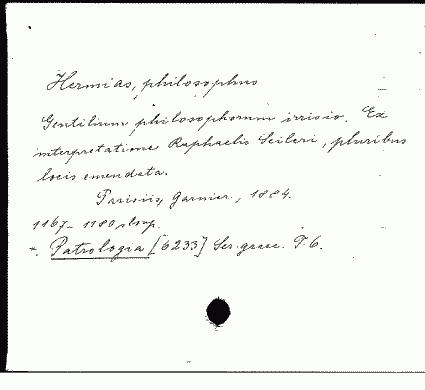 Hermias, philosophus
Gentilium philosophorum irrisio. Ex
interpretatione Raphaelis Seileri, pluribus
locis emendata.
Parisiis, Garnier, 1884.
1167-1180 hasp.
Patrologia [6233] Ser. graec. T. 6.